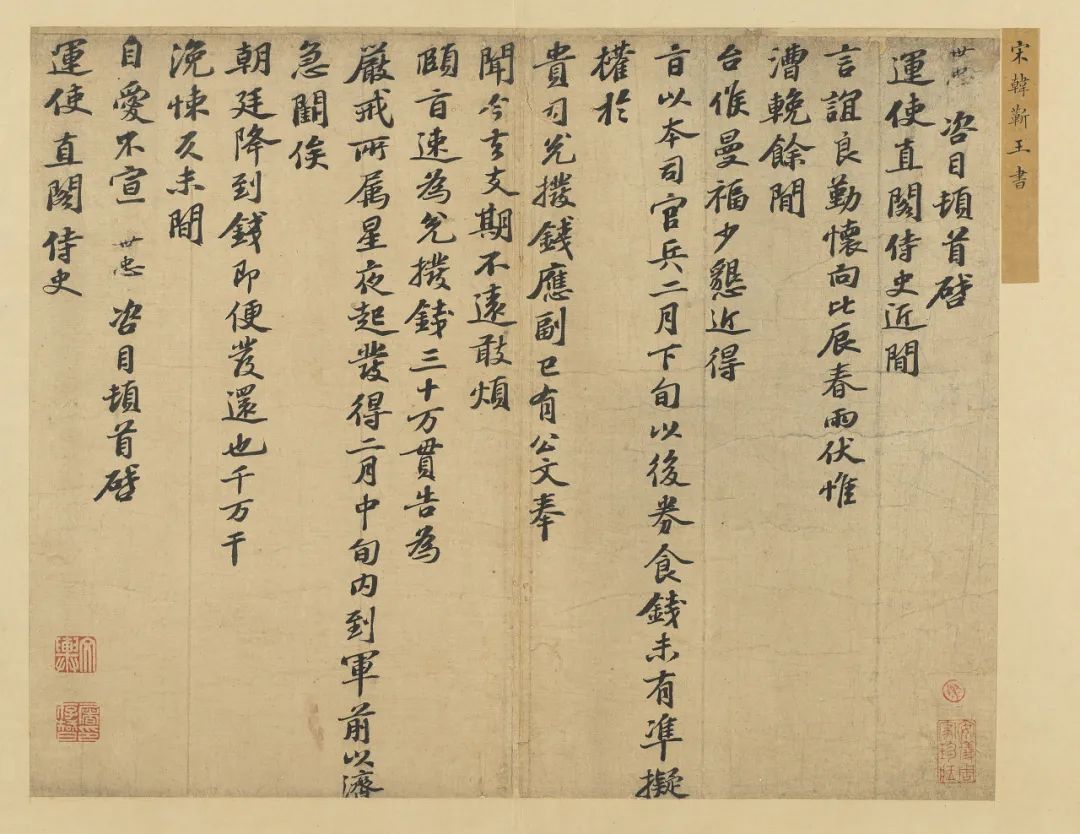 宋韓蘄王書
世忠 咨目頓首啓
運使直閣侍史近間
言誼良勤懷向比辰春雨伏惟
漕輓餘間
台候曼福少懇近得
旨以本司官兵二月下旬以後券食錢未有準擬
權於
貴司兌撥錢應副已有公文奉
聞今去支期不遠敢煩
頤旨速為兌撥錢三十万貫告為
嚴戒所属星夜起發得二月中旬内到軍前以濟
急闕俟
朝廷降到錢即便發還也千万千
浼悚仄未間
自愛不宣 世忠 咨目頓首啓
運使直閣侍史